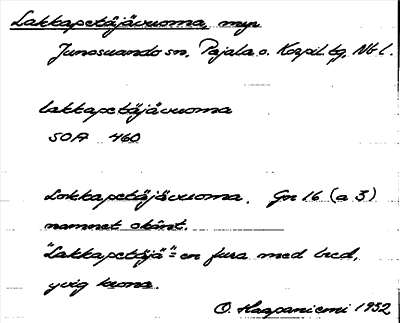 Lakkapetäjävuoma, myr
Junosuando sn, Pajala o. Korpil. tg, Nb l.
lakkapetäjävuoma
SOA 460
Lakkapetäjävuoma. Gn 16 (a 3)
namnet okänt.
"Lakkapetäjä" = en fura med bred,
yvig krona.
O. Haapaniemi 1932